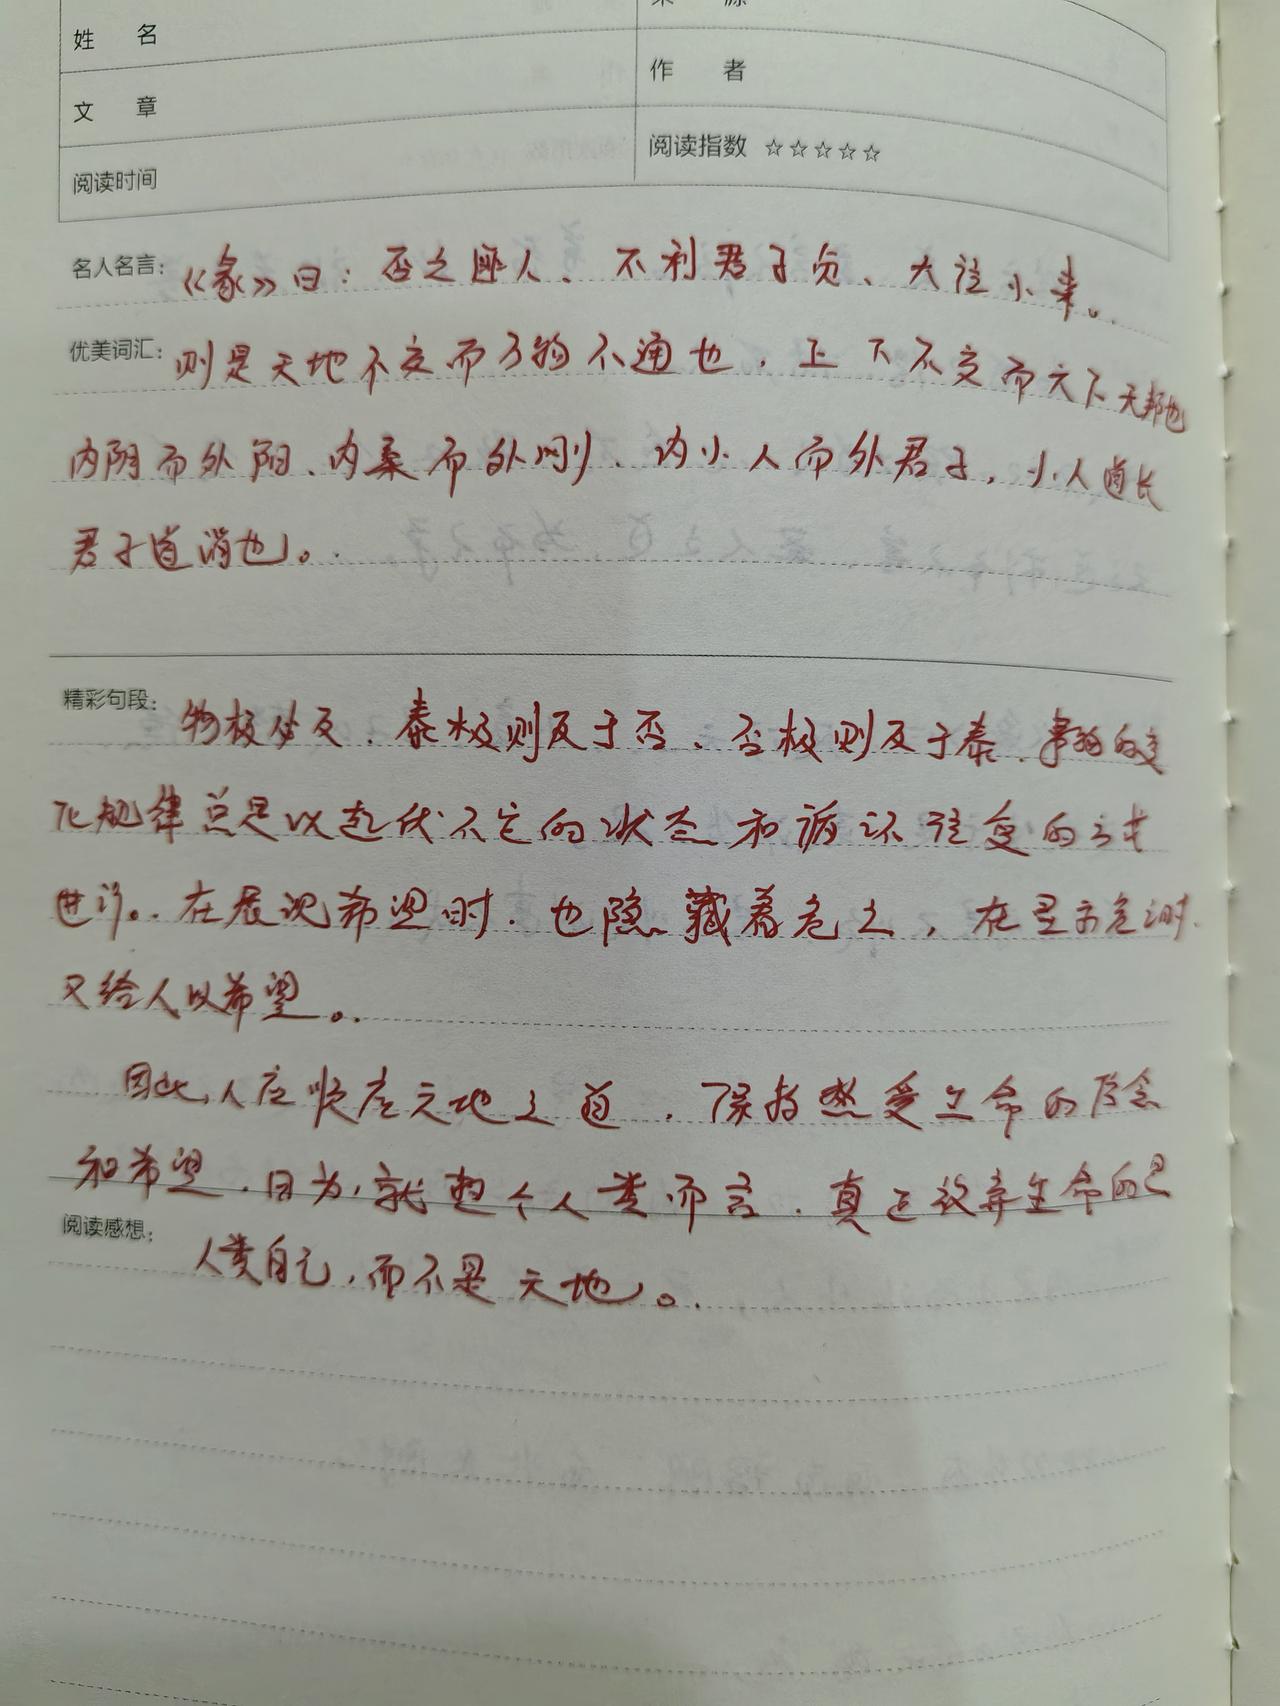 姓 名
作 者
文 章
阅读指数 ☆☆☆☆☆
阅读时间
名人名言: 《彖》曰：否之匪人、不利君子贞、大往小来。
优美词汇: 则是天地不交而万物不通也，上下不交而天下无邦也
内阴而外阳、内柔而外刚、内小人而外君子，小人道长
君子道消也。
精彩句段: 物极必反、泰极则反于否、否极则反于泰、事物的变
化规律总是以起伏不定的状态和循环往复的方式
进行。在展现希望时、也隐藏着危亡，在呈示危亡时、
又给人以希望。
因此，人应顺应天地之道，保持热爱生命的信念
和希望、因为，就整个人类而言、真正放弃生命的是
阅读感想: 人类自己，而不是天地。